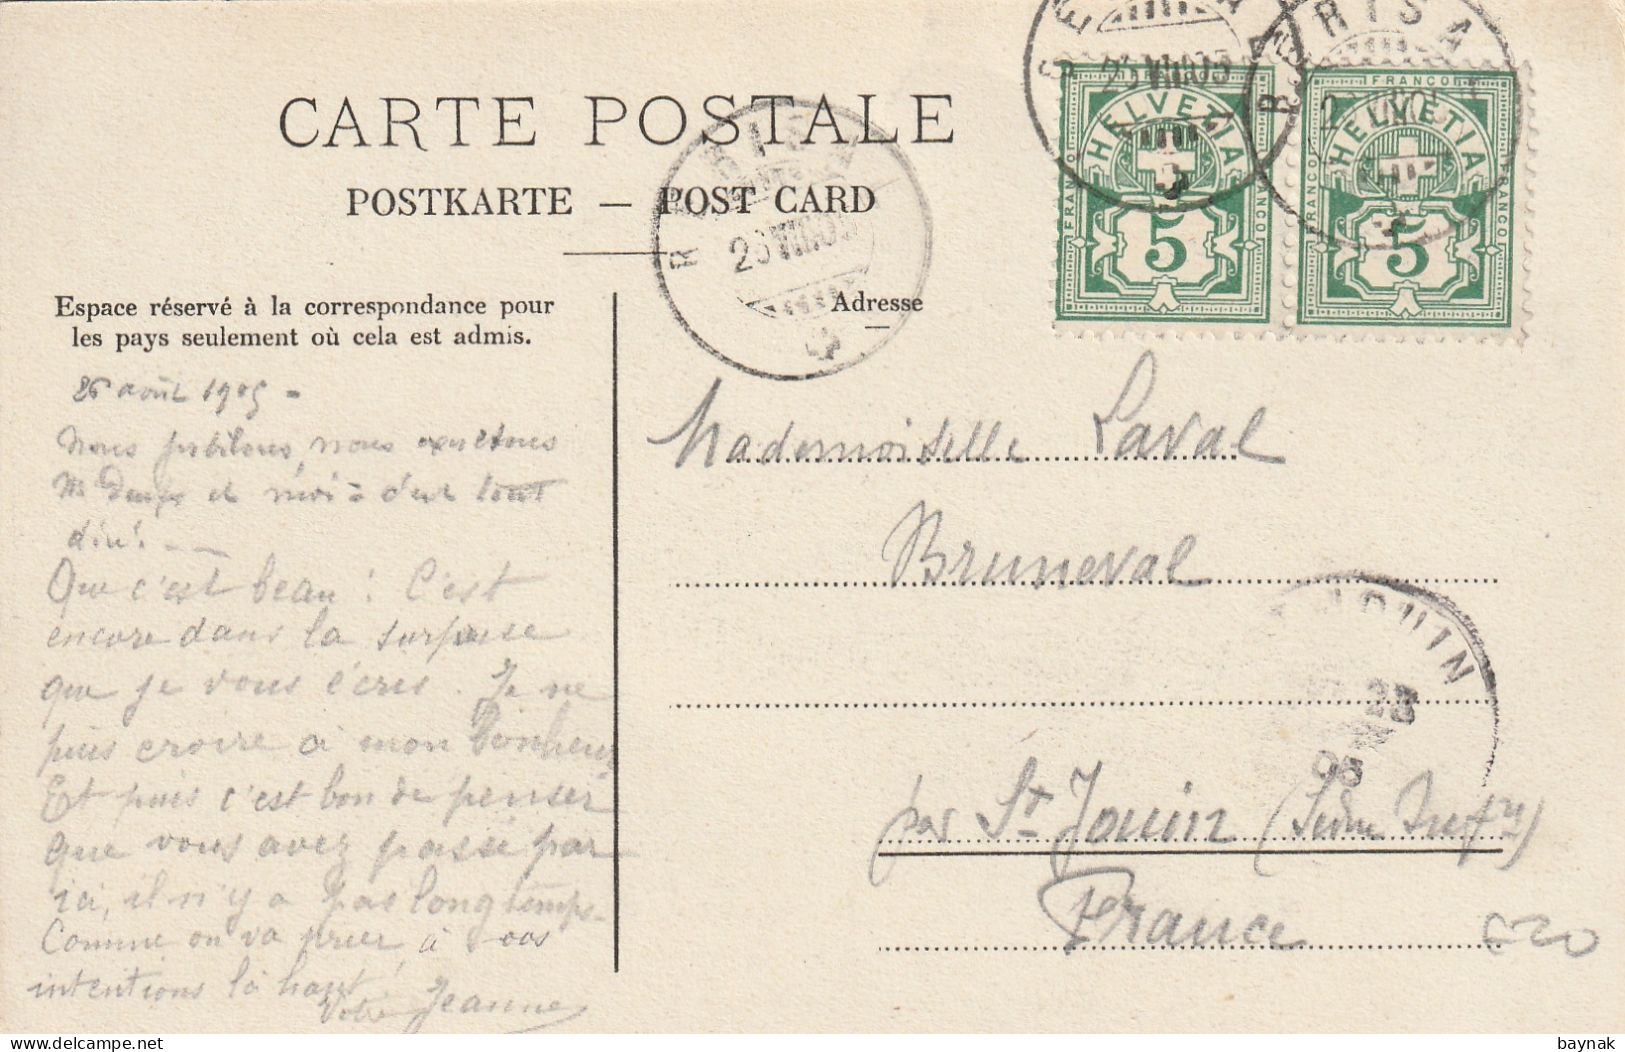 CARTE POSTALE
POSTKARTE — POST CARD
Espace réservé à la correspondance pour
les pays seulement où cela est admis.
Adresse
FRANCO
HELVETIA
FRANCO
FRANCO
5
FRANCO
HELVETIA
FRANCO
FRANCO
5
BRISA
26 août 1905 -
Nous jubilons, nous exultons
et moi = c'est tout
dire! -
Que c'est beau! C'est
encore dans la surprise
que je vous écris. Je ne
puis croire à mon bonheur
Et puis c'est bon de penser
que vous avez passé par
ici, il n'y a pas longtemps.
Comme on va prier à vos
intentions là haut!
Votre Jeanne
Mademoiselle Laval
Bruneval
par St Jouin (Seine Infre)
France
£20
baynak